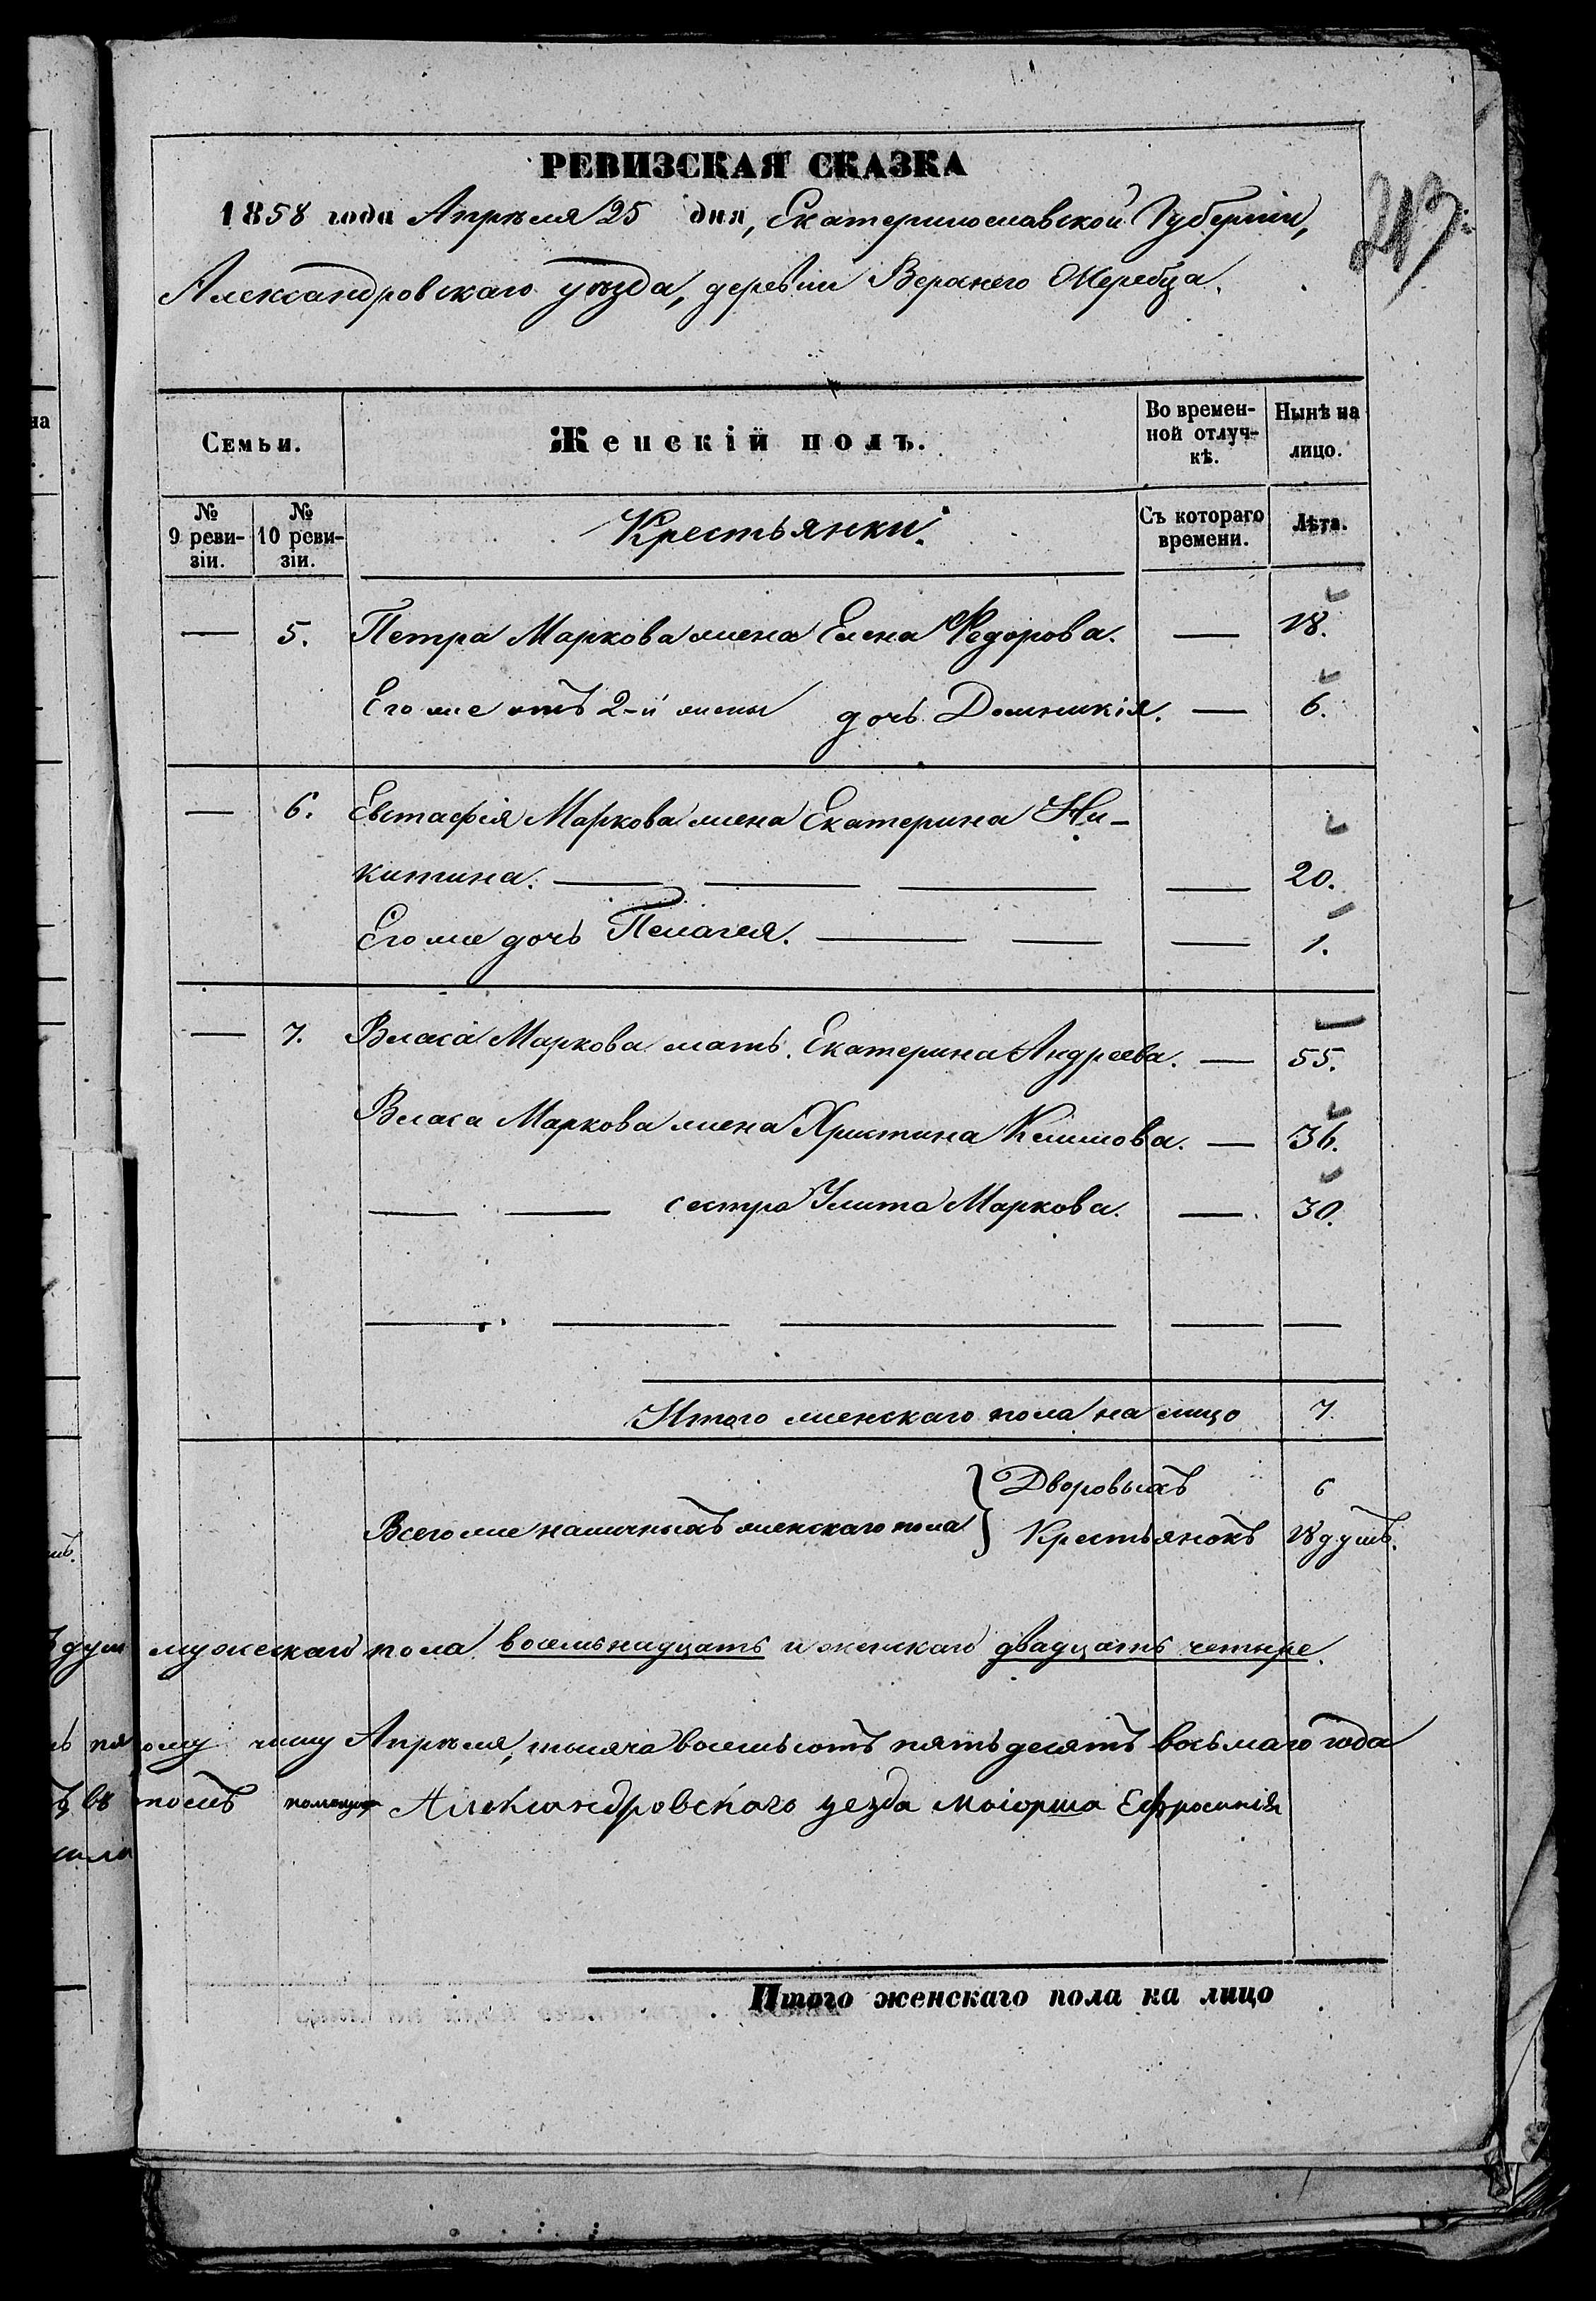 РЕВИЗСКАЯ СКАЗКА
1858 года Апрѣля 25 дня, Екатеринославской Губерніи,
Александровскаго уѣзда, деревни Верхнего Жеребца.
Семьи.
Женскій полъ.
Во времен-
ной отлуч-
кѣ.
Нынѣ на
лицо.
№
9 реви-
зіи.
№
10 реви-
зіи.
Крестьянки.
Съ котораго
времени.
Лѣта.
— 5. Петра Маркова жена Елена Федорова. — 18.
Его же отъ 2-й жены дочь Домникія. — 6.
— 6. Евстафія Маркова жена Екатерина Ни-
китина. — — — — 20.
Его же дочь Пелагея. — — — 1.
— 7. Власа Маркова мать Екатерина Андреева. — 55.
Власа Маркова жена Христина Климова. — 36.
— — сестра Улита Маркова. — 30.
Итого женскаго пола на лицо 7.
Всего же наличныхъ женскаго пола } Дворовыхъ 6
Крестьянокъ 18 душъ.
душ мужескаго пола восемьнадцать и женскаго двадцать четыре.
ому числу Апрѣля, тысяча восемьсотъ пятьдесятъ восьмаго года
томъ Александровского уезда Маіорша Ефросинія
Итого женскаго пола на лицо